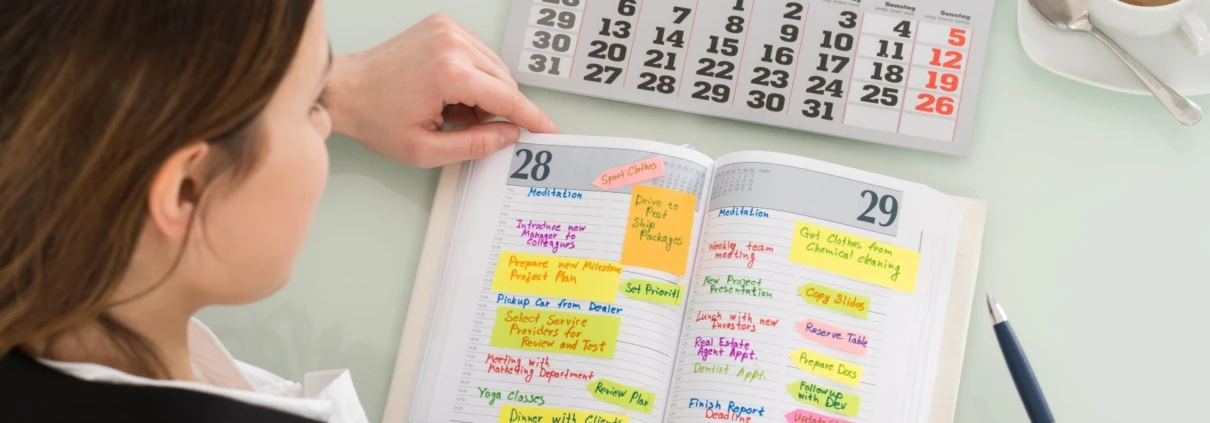 Samstag Sonntag
28 6 7 1 2 3 4 5
29 13 14 8 9 10 11 12
30 20 21 15 16 17 18 19
31 27 28 22 23 24 25 26
29 30 31
28
Sport Clothes
Meditation
Drive to
Post
Ship
Packages
Introduce new
Manager to
Colleagues
Prepare new Milestone
Project Plan
Set Prioriti
Pickup Car from Dealer
Select Service
Providers for
Review and Test
Meeting with
Marketing Department
Review Plan
Yoga Classes
Dinner with Clients
29
Meditation
Get Clothes from
Chemical cleaning
Weekly team
meeting
New Project
Presentation
Copy Slides
Lunch with new
Investors
Reserve Table
Real Estate
Agent Appt.
Prepare Docs
Dentist Appt.
Followup
with Dev
Finish Report
Deadline
Update